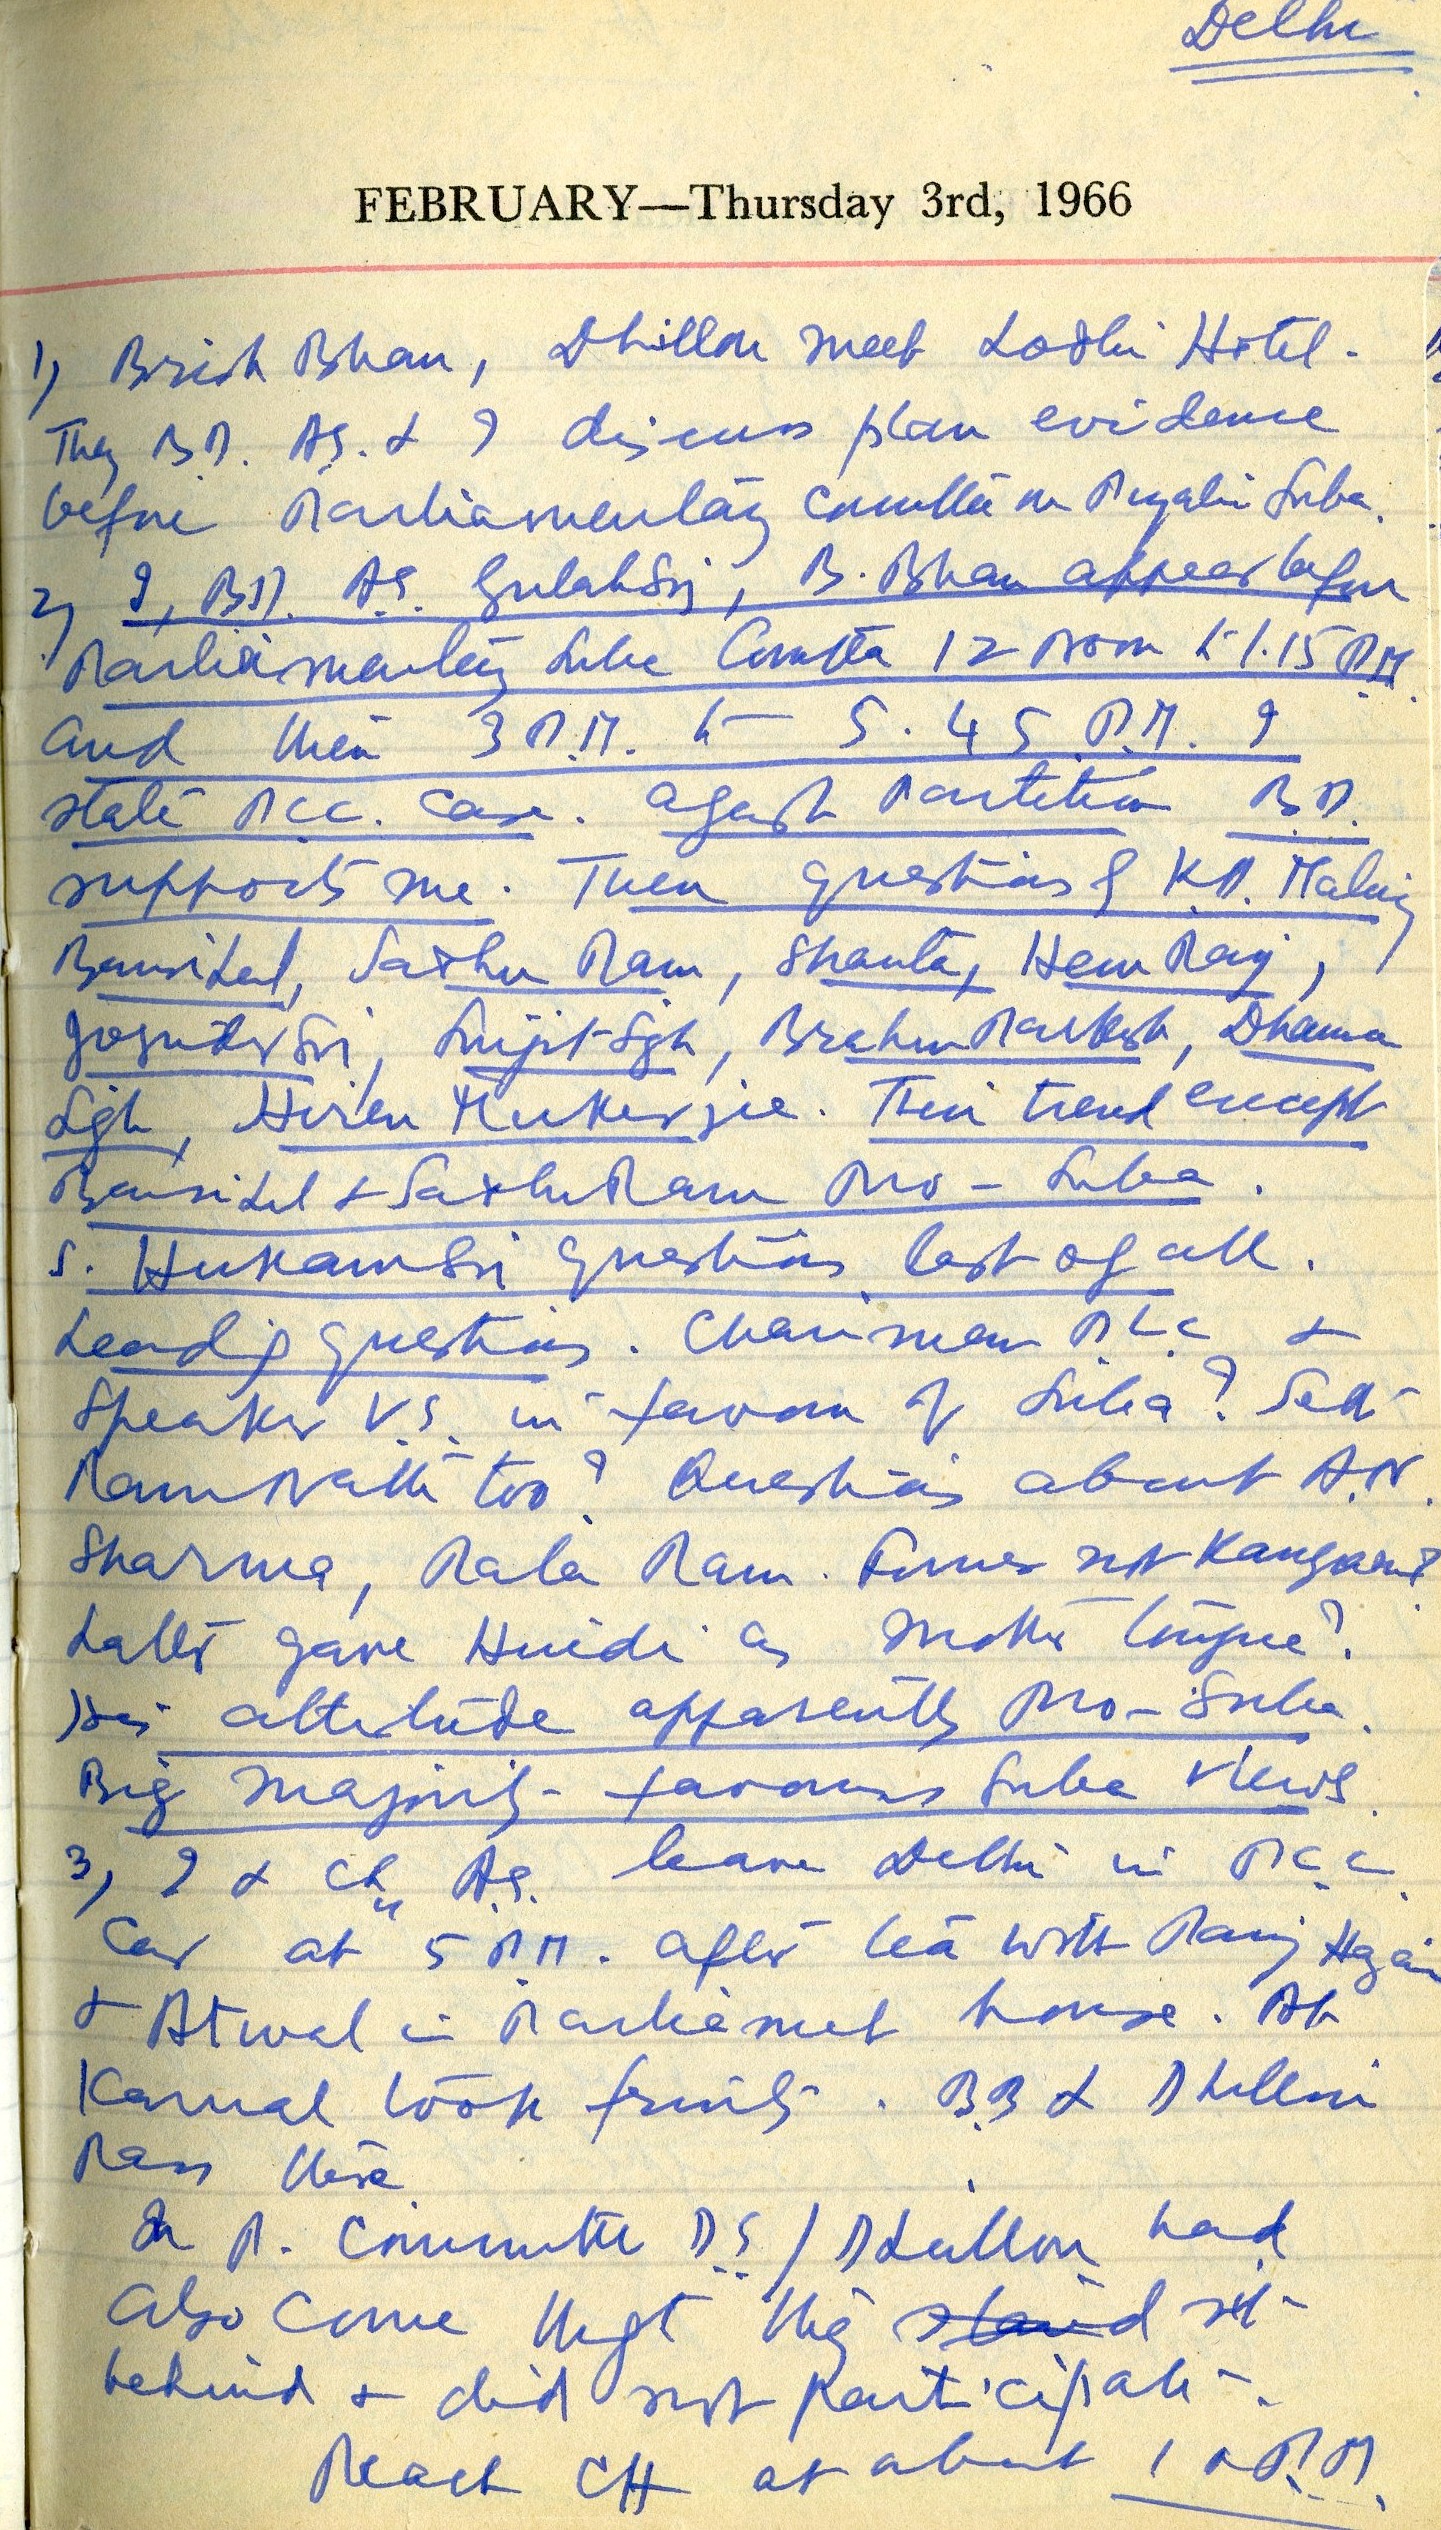 Delhi
FEBRUARY—Thursday 3rd, 1966
1) Brish Bhan, Dhillon meet Lodhi Hotel.
They B.D. AS. & I discuss plan evidence
before Parliamentary Committee on Punjabi Suba.
2) I, B.D. A.S. Gulab Singh, B. Bhan appear before
Parliamentary Suba Committee 12 noon to 1.15 P.M.
and then 3 P.M. to 5.45 P.M. I
state P.C.C. case. against Partition B.D.
supports me. Then questions of K.D. Malviy
Bansi Lal, Sadhu Ram, Shanta, Hem Raj,
Joginder Singh, Surjit Sgh, Brahm Parkash, Dhanna
Sgh, Hiren Mukerjee. Their trend except
Bansi Lal & Sadhu Ram Pro-Suba.
S. Hukam Singh questions last of all.
Leading questions. Chairman P.L.C &
Speaker V.S. in favour of Suba? Seth
Ram Nath too? Questions about A.N.
Sharma, Rala Ram. Former not Kangra
Latter gave Hindi as mother tongue?
His attitude apparently Pro-Suba.
Big majority favours Suba views.
3) I & Ch. A.S. leave Delhi in P.C.C.
Car at 5 P.M. after tea with
& Atwal in Parliament house. At
Karnal took fruits. B.B & Dhillon
Pass there
In P. Committee D.S/Dhillon had
also come they sit
behind & did not participate.
Reach CH at about 10 P.M.